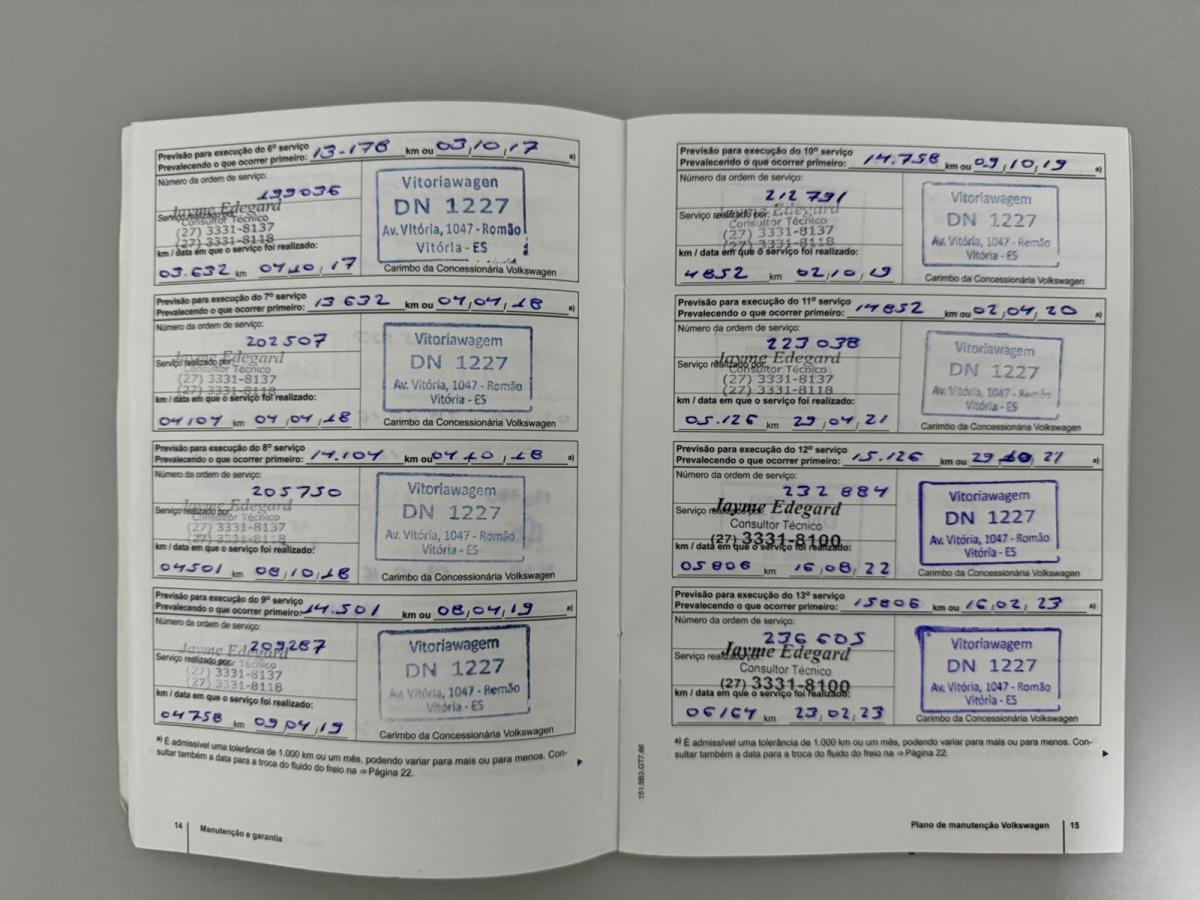 Previsão para execução do 6º serviço
Prevalecendo o que ocorrer primeiro: 13.178 km ou 03,10,17 a)
Número da ordem de serviço:
199036
Serviço realizado por:
Jayme Edegard
Consultor Técnico
(27) 3331-8137
(27) 3331-8118
km / data em que o serviço foi realizado:
03.632 km 04,10,17
Vitoriawagen
DN 1227
Av. Vitória, 1047 - Romão
Vitória - ES
Carimbo da Concessionária Volkswagen
Previsão para execução do 7º serviço
Prevalecendo o que ocorrer primeiro: 13632 km ou 04,04,18 a)
Número da ordem de serviço:
202507
Serviço realizado por:
Jayme Edegard
Consultor Técnico
(27) 3331-8137
(27) 3331-8118
km / data em que o serviço foi realizado:
04104 04,04,18
Vitoriawagem
DN 1227
Av. Vitória, 1047 - Romão
Vitória - ES
Carimbo da Concessionária Volkswagen
Previsão para execução do 8º serviço
Prevalecendo o que ocorrer primeiro: 14.104 km ou 04,10,18 a)
Número da ordem de serviço:
205750
Serviço realizado por:
Jayme Edegard
Consultor Técnico
(27) 3331-8137
(27) 3331-8118
km / data em que o serviço foi realizado:
04501 km 08,10,18
Vitoriawagem
DN 1227
Av. Vitória, 1047 - Romão
Vitória - ES
Carimbo da Concessionária Volkswagen
Previsão para execução do 9º serviço
Prevalecendo o que ocorrer primeiro: 14.501 km ou 08,04,19 a)
Número da ordem de serviço:
209287
Serviço realizado por:
Jayme Edegard
Consultor Técnico
(27) 3331-8137
(27) 3331-8118
km / data em que o serviço foi realizado:
04758 km 09,04,19
Vitoriawagem
DN 1227
Av. Vitória, 1047 - Romão
Vitória - ES
Carimbo da Concessionária Volkswagen
a) É admissível uma tolerância de 1.000 km ou um mês, podendo variar para mais ou para menos. Con-
sultar também a data para a troca do fluido do freio na ⇒ Página 22.
14 Manutenção e garantia
Previsão para execução do 10º serviço
Prevalecendo o que ocorrer primeiro: 14.758 km ou 09,10,19 a)
Número da ordem de serviço:
212791
Serviço realizado por:
Jayme Edegard
Consultor Técnico
(27) 3331-8137
(27) 3331-8118
km / data em que o serviço foi realizado:
4852 km 02,10,19
Vitoriawagem
DN 1227
Av. Vitória, 1047 - Romão
Vitória - ES
Carimbo da Concessionária Volkswagen
Previsão para execução do 11º serviço
Prevalecendo o que ocorrer primeiro: 14852 km ou 02,04,20 a)
Número da ordem de serviço:
223038
Serviço realizado por:
Jayme Edegard
Consultor Técnico
(27) 3331-8137
(27) 3331-8118
km / data em que o serviço foi realizado:
05.126 km 29,04,21
Vitoriawagem
DN 1227
Av. Vitória, 1047 - Romão
Vitória - ES
Carimbo da Concessionária Volkswagen
Previsão para execução do 12º serviço
Prevalecendo o que ocorrer primeiro: 15.126 km ou 29,10,21 a)
Número da ordem de serviço:
232884
Serviço realizado por:
Jayme Edegard
Consultor Técnico
(27) 3331-8100
km / data em que o serviço foi realizado:
05806 km 16,08,22
Vitoriawagem
DN 1227
Av. Vitória, 1047 - Romão
Vitória - ES
Carimbo da Concessionária Volkswagen
Previsão para execução do 13º serviço
Prevalecendo o que ocorrer primeiro: 15806 km ou 16,02,23 a)
Número da ordem de serviço:
236605
Serviço realizado por:
Jayme Edegard
Consultor Técnico
(27) 3331-8100
km / data em que o serviço foi realizado:
06164 km 23,02,23
Vitoriawagem
DN 1227
Av. Vitória, 1047 - Romão
Vitória - ES
Carimbo da Concessionária Volkswagen
a) É admissível uma tolerância de 1.000 km ou um mês, podendo variar para mais ou para menos. Con-
sultar também a data para a troca do fluido do freio na ⇒ Página 22.
151.5B3.GT7.66
Plano de manutenção Volkswagen 15